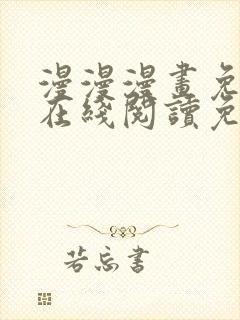 漫漫漫畫免
在綫閱讀免
若忘書